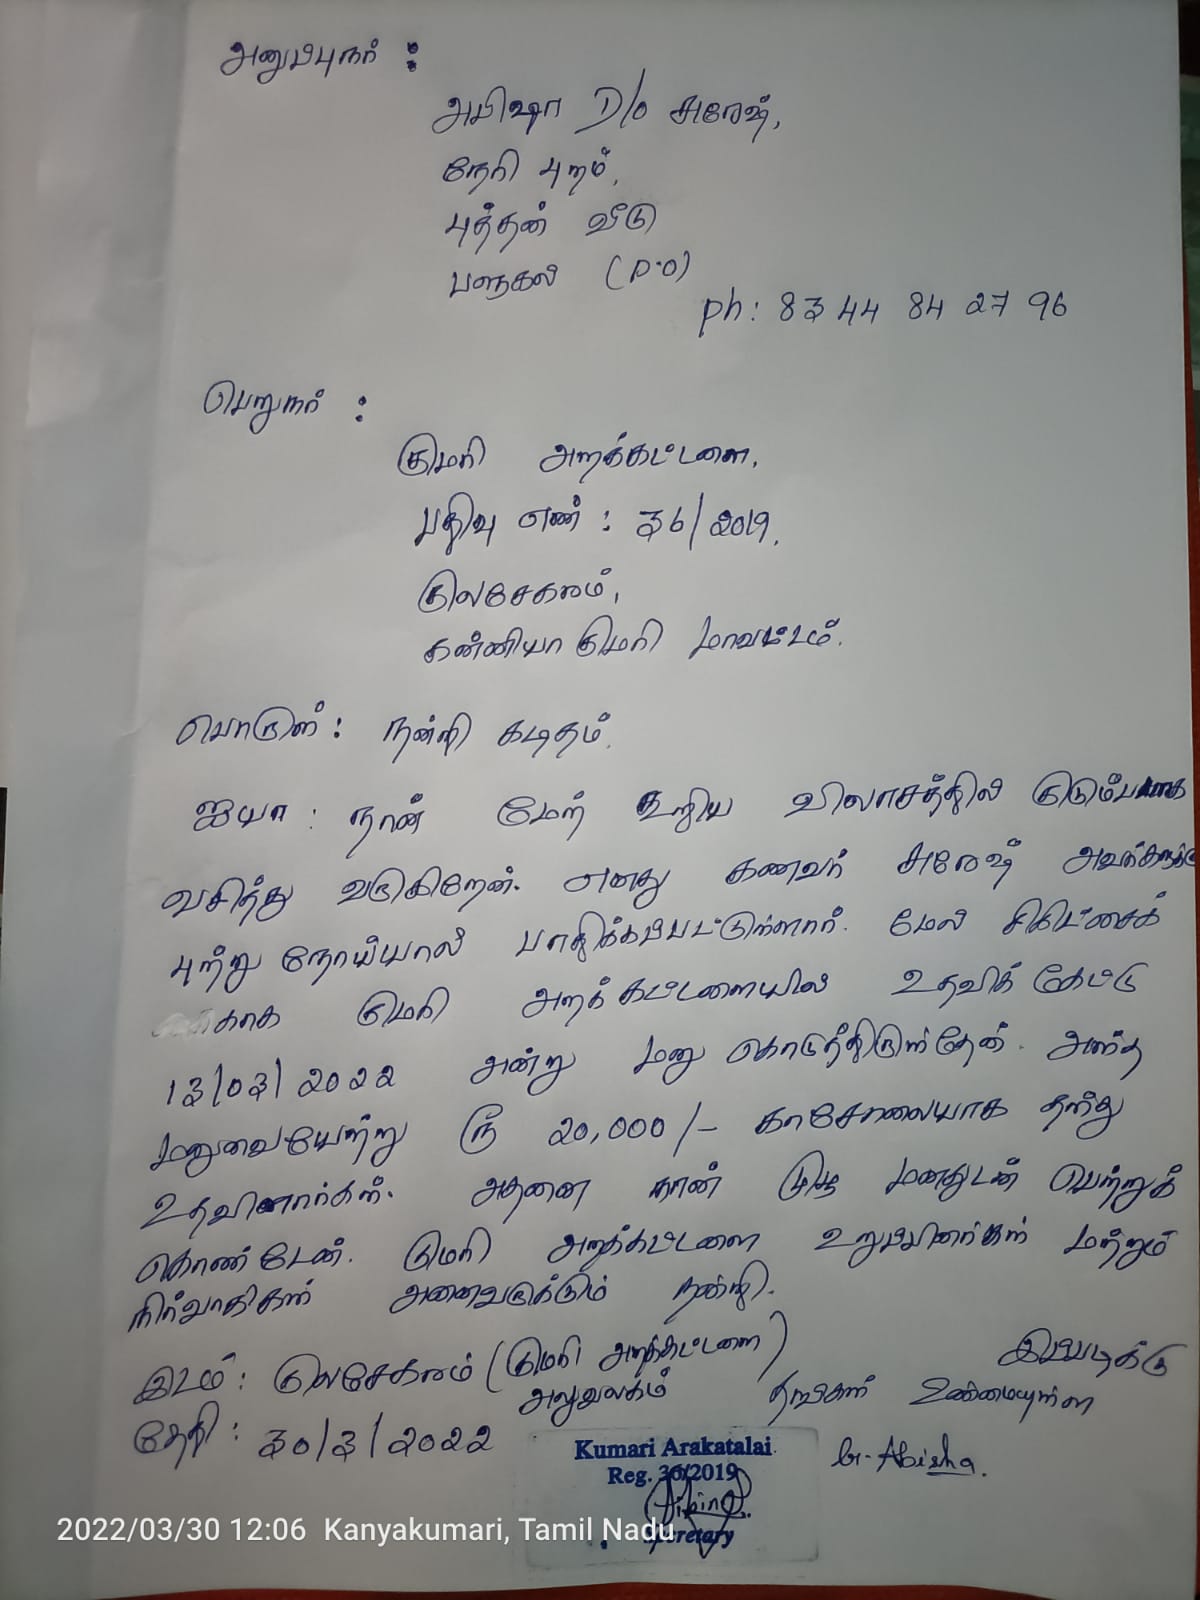 அனுப்புநர் :
அபிஷா D/o சுரேஷ்,
நேரி புறம்,
புத்தன் வீடு
பளுகல் (P.O)
ph: 83 44 84 27 96
பெறுநர் :
குமரி அறக்கட்டளை,
பதிவு எண் : 36/2019,
குலசேகரம்,
கன்னியாகுமரி மாவட்டம்.
பொருள் : நன்றி கடிதம்.
ஐயா : நான் மேற் கூறிய விலாசத்தில் குடும்பமாக
வசித்து வருகிறேன். எனது கணவர் சுரேஷ் அவர்களுக்கு
புற்று நோய்யால் பாதிக்கப்பட்டுள்ளார். மேல் சிகிட்சைக்
காக குமரி அறக் கட்டளையில் உதவிக் கேட்டு
13/03/2022 அன்று மனு கொடுத்திருந்தேன். அந்த
மனுவையேற்று ரூ 20,000/- காசோலையாக தந்து
உதவினார்கள். அதனை நான் முழு மனதுடன் பெற்றுக்
கொண்டேன். குமரி அறக்கட்டளை உறுப்பினர்கள் மற்றும்
நிர்வாகிகள் அனைவருக்கும் நன்றி.
இடம் : குலசேகரம் (குமரி அறக்கட்டளை) இப்படிக்கு
அலுவலகம் தங்கள் உண்மையுள்ள
தேதி : 30/3/2022
Kumari Arakatalai
Reg. 36/2019
Secretary
Abisha.
2022/03/30 12:06 Kanyakumari, Tamil Nadu